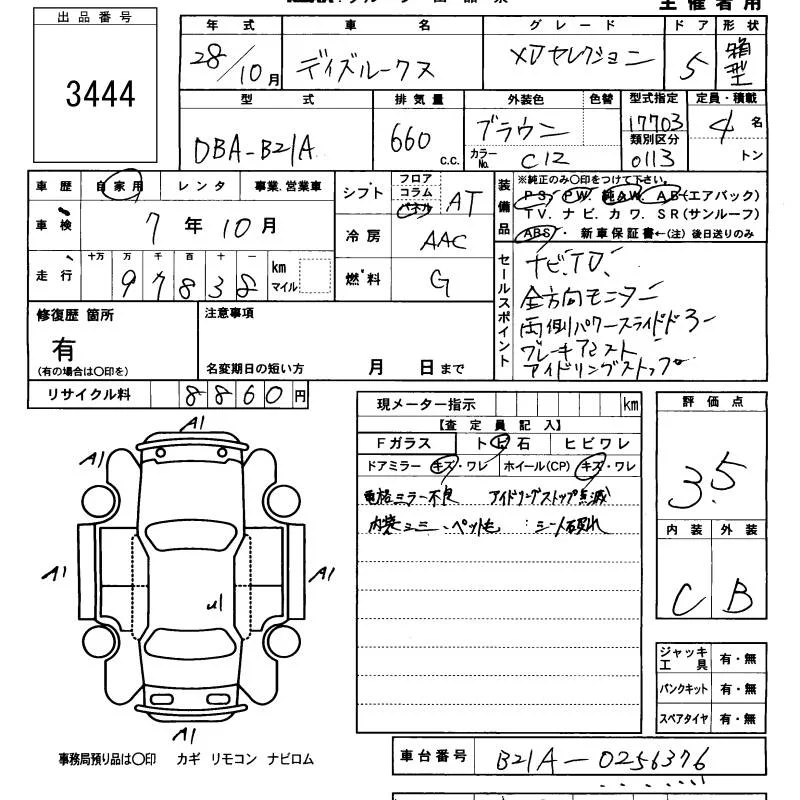 主催者用
出品番号
3444
年式 車名 グレード ドア 形状
28/10月 デイズルークス XDセレクション 5 箱型
型式 排気量 外装色 色替 型式指定 定員・積載
DBA-B21A 660 c.c. ブラウン 17703 4名
類別区分
カラーNo. C12 0113 トン
車歴 自家用 レンタ 事業、営業車
車検 7年10月
走行 十万 万 千 百 十 一
97838 km マイル
シフト フロア コラム パネル AT
冷房 AAC
燃料 G
装備品 ※純正のみ〇印をつけて下さい。
PS. PW. 純AW. AB(エアバック)
TV. ナビ. カワ. SR(サンルーフ)
ABS. 新車保証書←(注)後日送りのみ
セールスポイント
ナビ、TV、
全方向モニター
両側パワースライドドアー
ブレーキアシスト
アイドリングストップ
修復歴 箇所
有
(有の場合は〇印を)
注意事項
名変期日の短い方 月 日まで
リサイクル料 8860円
現メーター指示 km
【査定員記入】
Fガラス トビ石 ヒビワレ
ドアミラー キズ・ワレ ホイール(CP) キズ・ワレ
電格ミラー不良 アイドリングストップ点滅
内装シミ、ペット毛
評価点
3.5
内装 外装
C B
ジャッキ工具 有・無
パンクキット 有・無
スペアタイヤ 有・無
A1
A1
A1
A1
U1
A1
事務局預り品は〇印 カギ リモコン ナビロム
車台番号 B21A-0256376